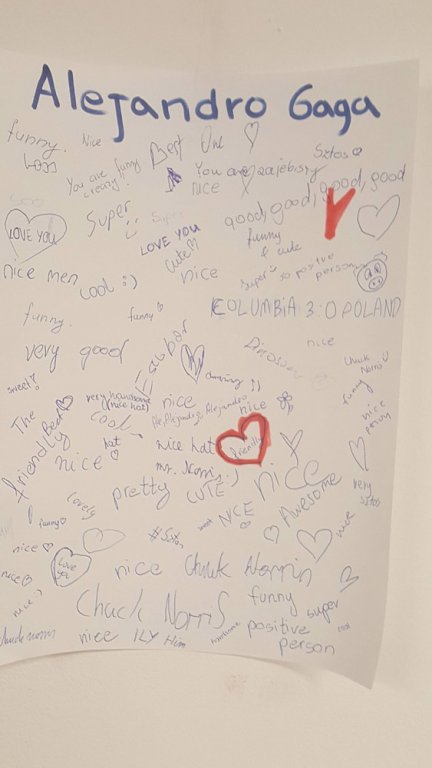 Alejandro Gaga
funny.
Nice
Best One
Sztos
You are funny
crazy!
You are zajebisty
nice
good, good, good, good
LOVE YOU
Super
Super
LOVE YOU
cute
funny
& cute
nice men
cool :)
nice
super so positive
person
funny.
funny
COLUMBIA 3:0 POLAND
very good
nice
Chuck
Norris
sweet!
amazing :)
funny
The
friendly
very handsome
(nice hat)
cool
nice
Ale, Alejandro, Alejandro
nice
nice
person
hat
nice hat
friendly
nice
mr. Norris :)
nice
pretty
CUTE
lovely
NICE
Awesome
very
sztos
funny
#Sztos
nice
nice
Love
you
nice
Chuck Norrin
nice
nice :)
Chuck Norris
funny
super
chuck norris
nice
ILY Him
handsome
positive
person
cool